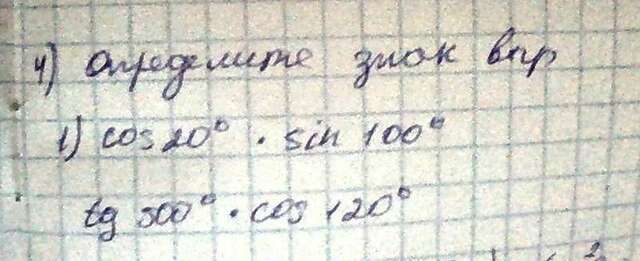 4) определите знак выр
1) cos 20° · sin 100°
tg 300° · cos 120°